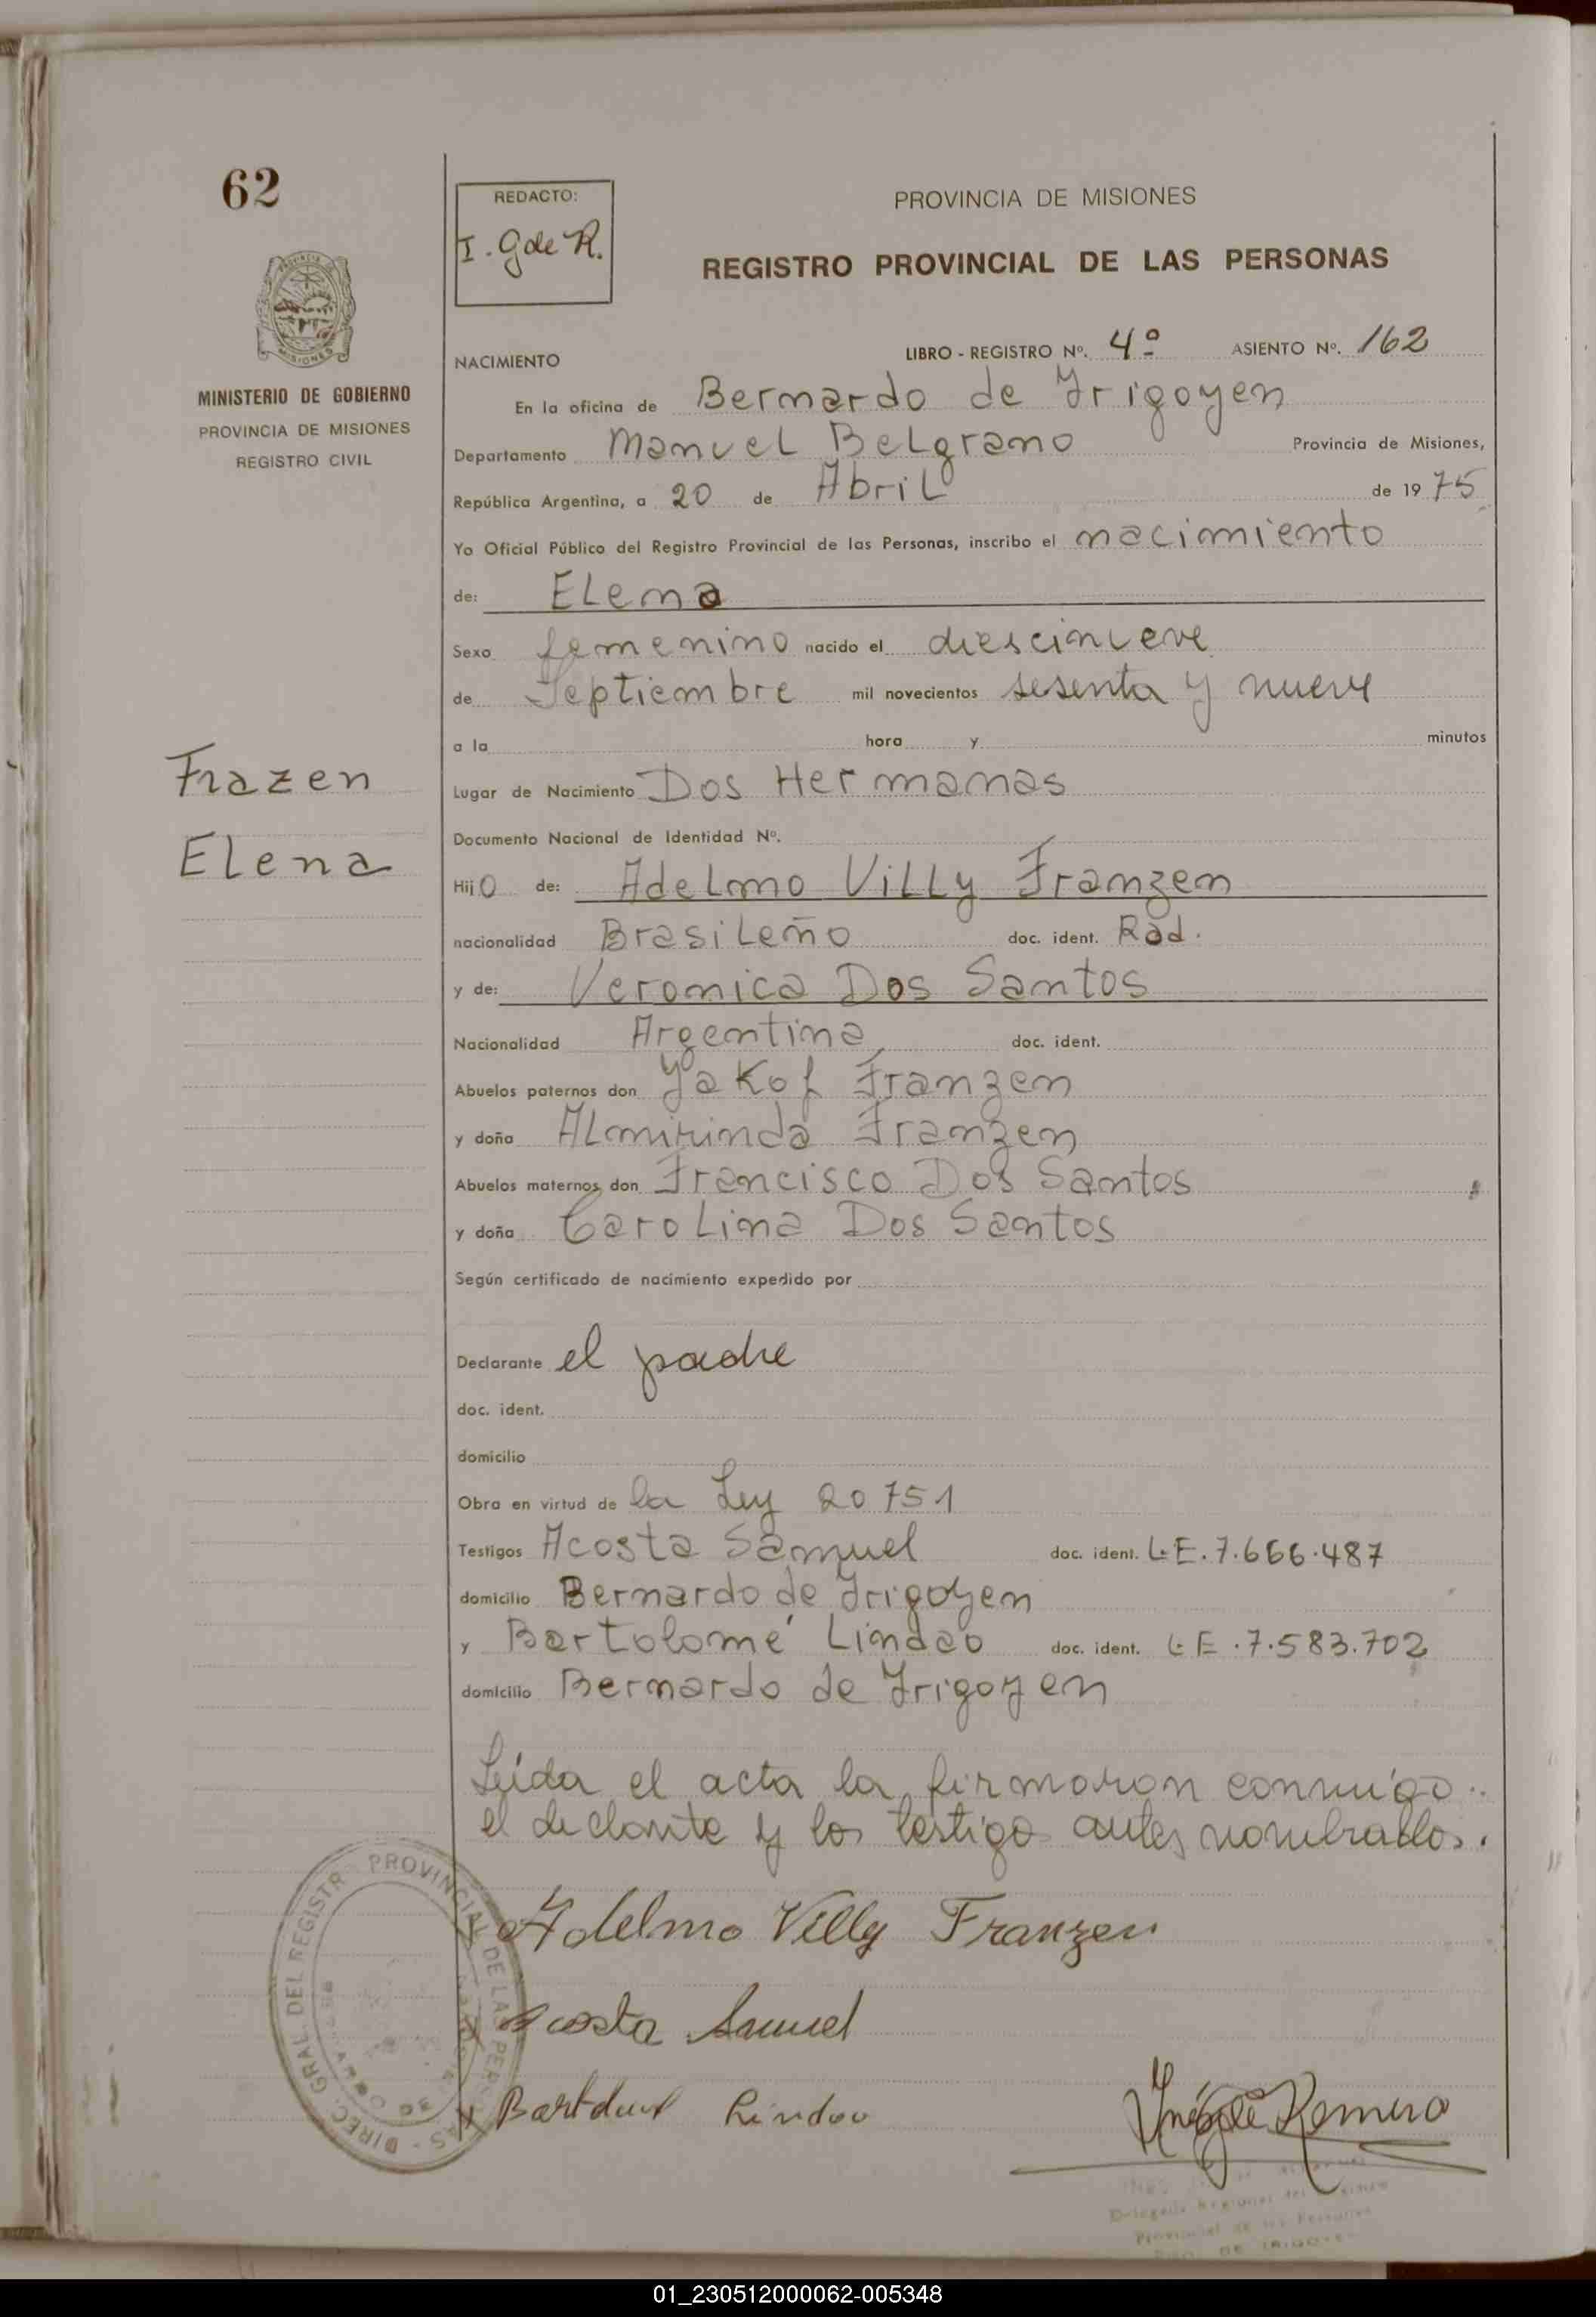 62
REDACTO:
I. G de R.
PROVINCIA DE MISIONES
REGISTRO PROVINCIAL DE LAS PERSONAS
MINISTERIO DE GOBIERNO
PROVINCIA DE MISIONES
REGISTRO CIVIL
NACIMIENTO LIBRO - REGISTRO Nº. 4º ASIENTO Nº. 162
En la oficina de Bernardo de Irigoyen
Departamento Manuel Belgrano Provincia de Misiones,
República Argentina, a 20 de Abril de 1975
Yo Oficial Público del Registro Provincial de las Personas, inscribo el nacimiento
de: Elena
Sexo femenino nacido el diescinueve
de Septiembre mil novecientos sesenta y nueve
a la hora y minutos
Frazen
Elena
Lugar de Nacimiento Dos Hermanas
Documento Nacional de Identidad Nº.
Hijo de: Adelmo Villy Franzen
nacionalidad Brasileño doc. ident. Rad.
y de: Veronica Dos Santos
Nacionalidad Argentina doc. ident.
Abuelos paternos don Yakof Franzen
y doña Almirinda Franzen
Abuelos maternos don Francisco Dos Santos
y doña Carolina Dos Santos
Según certificado de nacimiento expedido por
Declarante el padre
doc. ident.
domicilio
Obra en virtud de la Ley 20751
Testigos Acosta Samuel doc. ident. L.E. 7.666.487
domicilio Bernardo de Irigoyen
y Bartolomé Lindao doc. ident. L.E. 7.583.702
domicilio Bernardo de Irigoyen
Leida el acta la firmaron conmigo
el declante y los testigo antes nombrados.
Adelmo Villy Franzen
Acosta Samuel
Lindao
Inés G de Romero
DIREC. GRAL. DEL REGISTR PROVINCIAL DE LAS PERSONAS
Provincial de las Personas
01_230512000062-005348